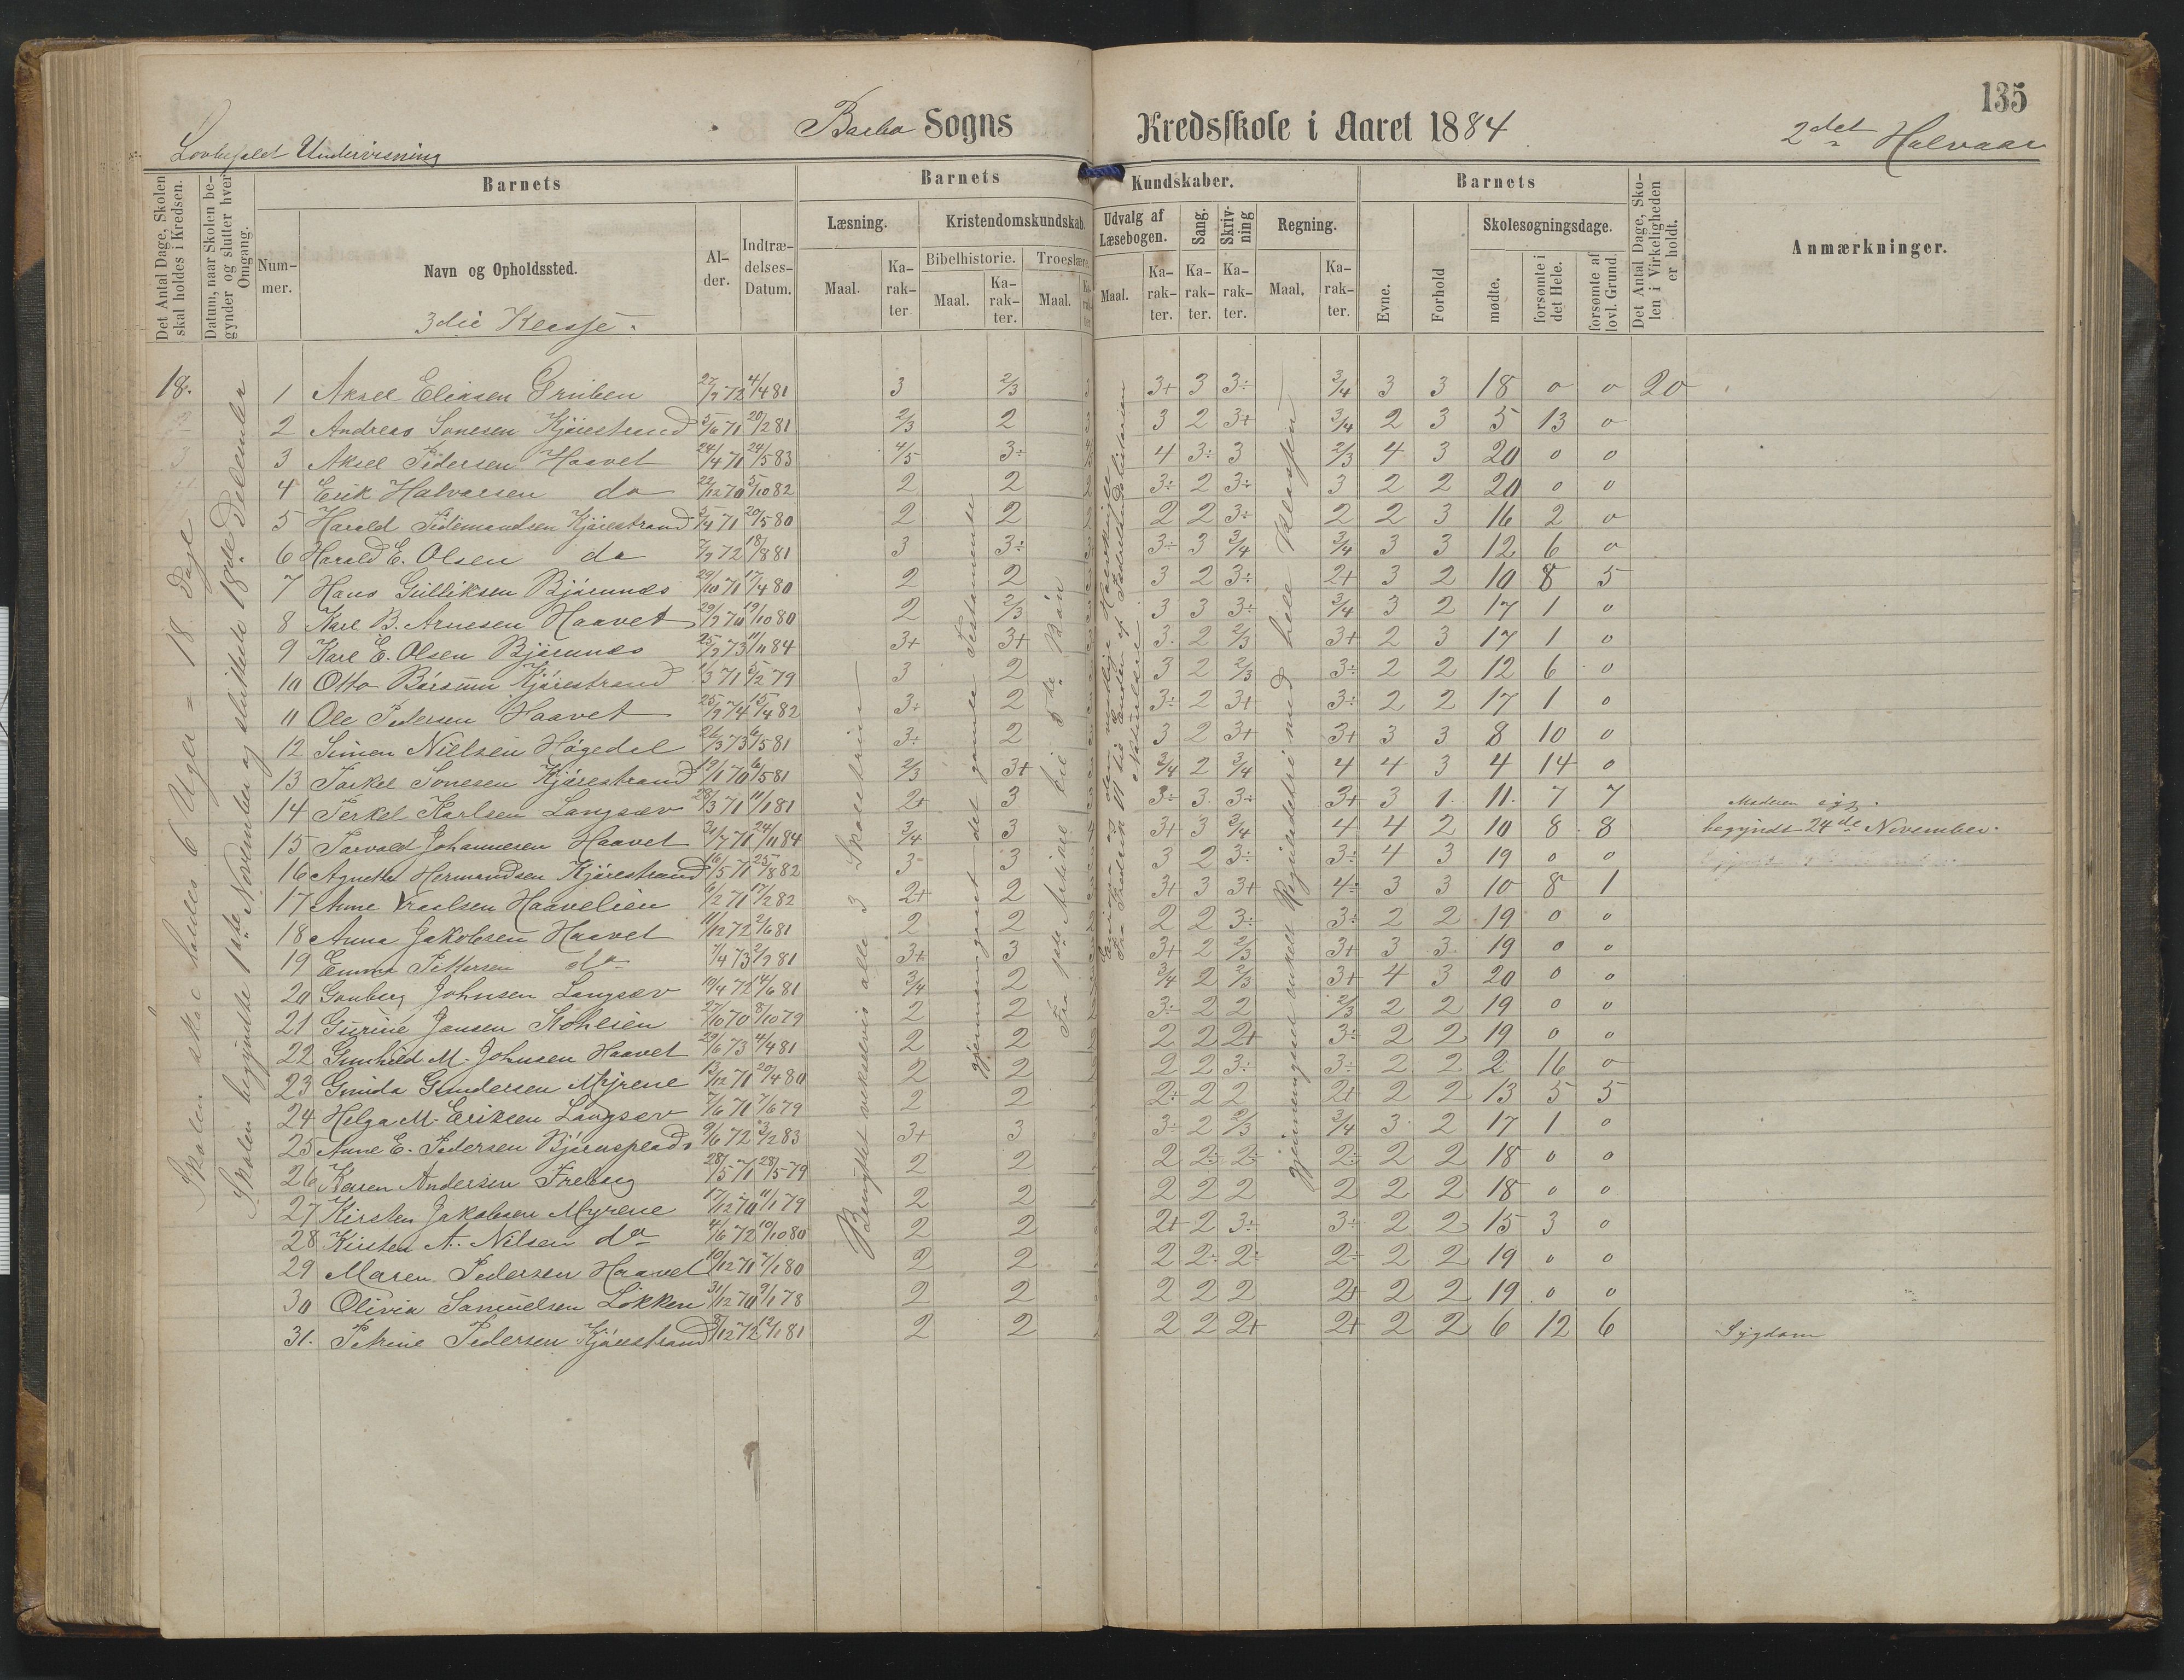 135
Barbo Sogns Kredsskole i Aaret 1884 2det Halvaar
Lovbefalet Undervisning
Det Antal Dage, Skolen skal holdes i Kredsen.
Datum, naar Skolen begynder og slutter hver Omgang.
Barnets
Nummer.
Navn og Opholdssted.
3die Klasse.
Alder.
Indtrædelses-Datum.
Barnets Kundskaber.
Læsning.
Maal.
Karakter
Kristendomskundskab.
Bibelhistorie.
Maal.
Karakter.
Troeslære.
Maal.
Karakter
Udvalg af Læsebogen.
Maal.
Karakter.
Sang.
Karakter.
Skrivning
Karakter.
Regning.
Maal.
Karakter.
Barnets
Evne.
Forhold
Skolesøgningsdage.
mødte.
forsømte i det Hele.
forsømte af lovl. Grund.
Det Antal Dage, Skolen i Virkeligheden er holdt.
Anmærkninger.
18.
Skolen skal holdes 6 Uger = 18 Dage
Skolen begyndte 1ste November og sluttede 18de December
Benyttet vekselvis alle 3 Skoletrin
gjennemgaaet det gamle Testamente
Fra 1ste Artikel til 5te Bøn
gjennemgaaet enkelt Reguladetri med hele Klassen
1 Aksel Eliasen Gruben 27/9 72 4/4 81 3 2/3 3+ 3 3÷ 3/4 3 3 18 0 0 20
2 Andreas Tonesen Kjørestrand 5/6 71 20/2 81 2/3 2 3 2 3+ 3/4 2 3 5 13 0
3 Aksel Pedersen Haavet 24/4 71 24/5 83 4/5 3÷ 4 3÷ 3 2/3 4 3 20 0 0
4 Erik Halvorsen do 22/12 70 5/10 82 2 2 3÷ 2 3÷ 3 2 2 20 0 0
5 Harald Tidemandsen Kjørestrand 5/4 71 20/5 80 2 2 2 2 3÷ 2 2 3 16 2 0
6 Harald E. Olsen do 7/9 72 18/8 81 3 3÷ 3÷ 3 3/4 3/4 3 3 12 6 0
7 Hans Gulliksen Bjørnnes 29/10 71 17/4 80 2 2 3 2 3÷ 2+ 3 2 10 8 5
8 Karl B. Arnesen Haavet 29/9 70 19/10 80 2 2/3 3 3 3÷ 3/4 3 2 17 1 0
9 Karl E. Olsen Bjørnnes 25/9 73 11/11 84 3+ 3+ 3. 2 2/3 3+ 2 3 17 1 0
10 Otto Børsum Kjørestrand 1/3 71 5/2 79 3 2 3 2 2/3 3÷ 2 2 12 6 0
11 Ole Pedersen Haavet 25/9 74 15/4 82 3÷ 2 3÷ 2 3+ 3÷ 2 2 17 1 0
12 Simon Nielsen Høgedal 26/3 73 6/5 81 3÷ 2 3 2 3+ 3+ 3 3 8 10 0
13 Torkel Tonesen Kjørestrand 19/1 70 6/5 81 2/3 3+ 3/4 2 3/4 4 4 3 4 14 0
14 Terkel Karlsen Langsæv 28/3 71 11/1 81 2+ 3 3÷ 3. 3÷ 3+ 3 1 11. 7 7 Moderen syg.
15 Torvald Johannesen Haavet 31/7 71 24/11 84 3/4 3 3+ 3 3/4 4 4 2 10 8 8 begyndt 24de November.
16 Agnethe Hermandsen Kjørestrand 16/5 71 25/8 82 3 3 3 2 3÷ 3÷ 4 3 19 0 0
17 Anne Vraalsen Haavelien 6/2 71 17/2 82 2+ 2 3+ 3 3+ 4÷ 3 3 10 8 1
18 Anna Jakobsen Haavet 11/12 72 2/6 81 2 2 2 2 3÷ 3÷ 2 2 19 0 0
19 Emma Pettersen do 7/4 73 2/9 81 3+ 3 3+ 2 2/3 3+ 3 3 19 0 0
20 Gunberg Johnsen Langsæv 19/4 72 14/6 81 3/4 2 3/4 2 2/3 3+ 4 3 20 0 0
21 Gurine Jensen Stohlien 27/10 70 8/10 79 2 2 3÷ 2 2 2/3 2 2 19 0 0
22 Gunhild M. Johnsen Haavet 29/6 73 4/4 81 2 2 2 2 2+ 3÷ 2 2 19 0 0
23 Gunda Gundersen Myrene 13/12 71 20/4 80 2 2 2 2 3÷ 3÷ 2 2 2 16 0
24 Helga M. Eriksen Langsæv 7/6 71 7/6 79 2 2 2÷ 2 2 2+ 2 2 13 5 5
25 Anne E. Pedersen Bjørnsplads 9/6 72 3/2 83 3+ 3 3÷ 2 2/3 3/4 3 2 17 1 0
26 Karen Andersen Freberg 28/5 71 28/5 79 2 2 2 2÷ 2÷ 2÷ 2 2 18 0 0
27 Kirsten Jakobsen Myrene 17/12 70 11/1 79 2 2 2 2 2 2 2 2 18 0 0
28 Kirsten A. Nilsen do 4/6 72 19/10 80 2 2 2+ 2 3÷ 3÷ 2 2 15 3 0
29 Maren Pedersen Haavet 10/12 71 7/1 80 2 2 2 2÷ 2÷ 2÷ 2 2 19 0 0
30 Olivia Samuelsen Løkken 31/12 70 9/1 78 2 2 2 2 2 2+ 2 2 19 0 0
31. Petrine Pedersen Kjørestrand 8/12 72 12/1 81 2 2 2 2 2+ 2+ 2 2 6 12 6 Sygdom